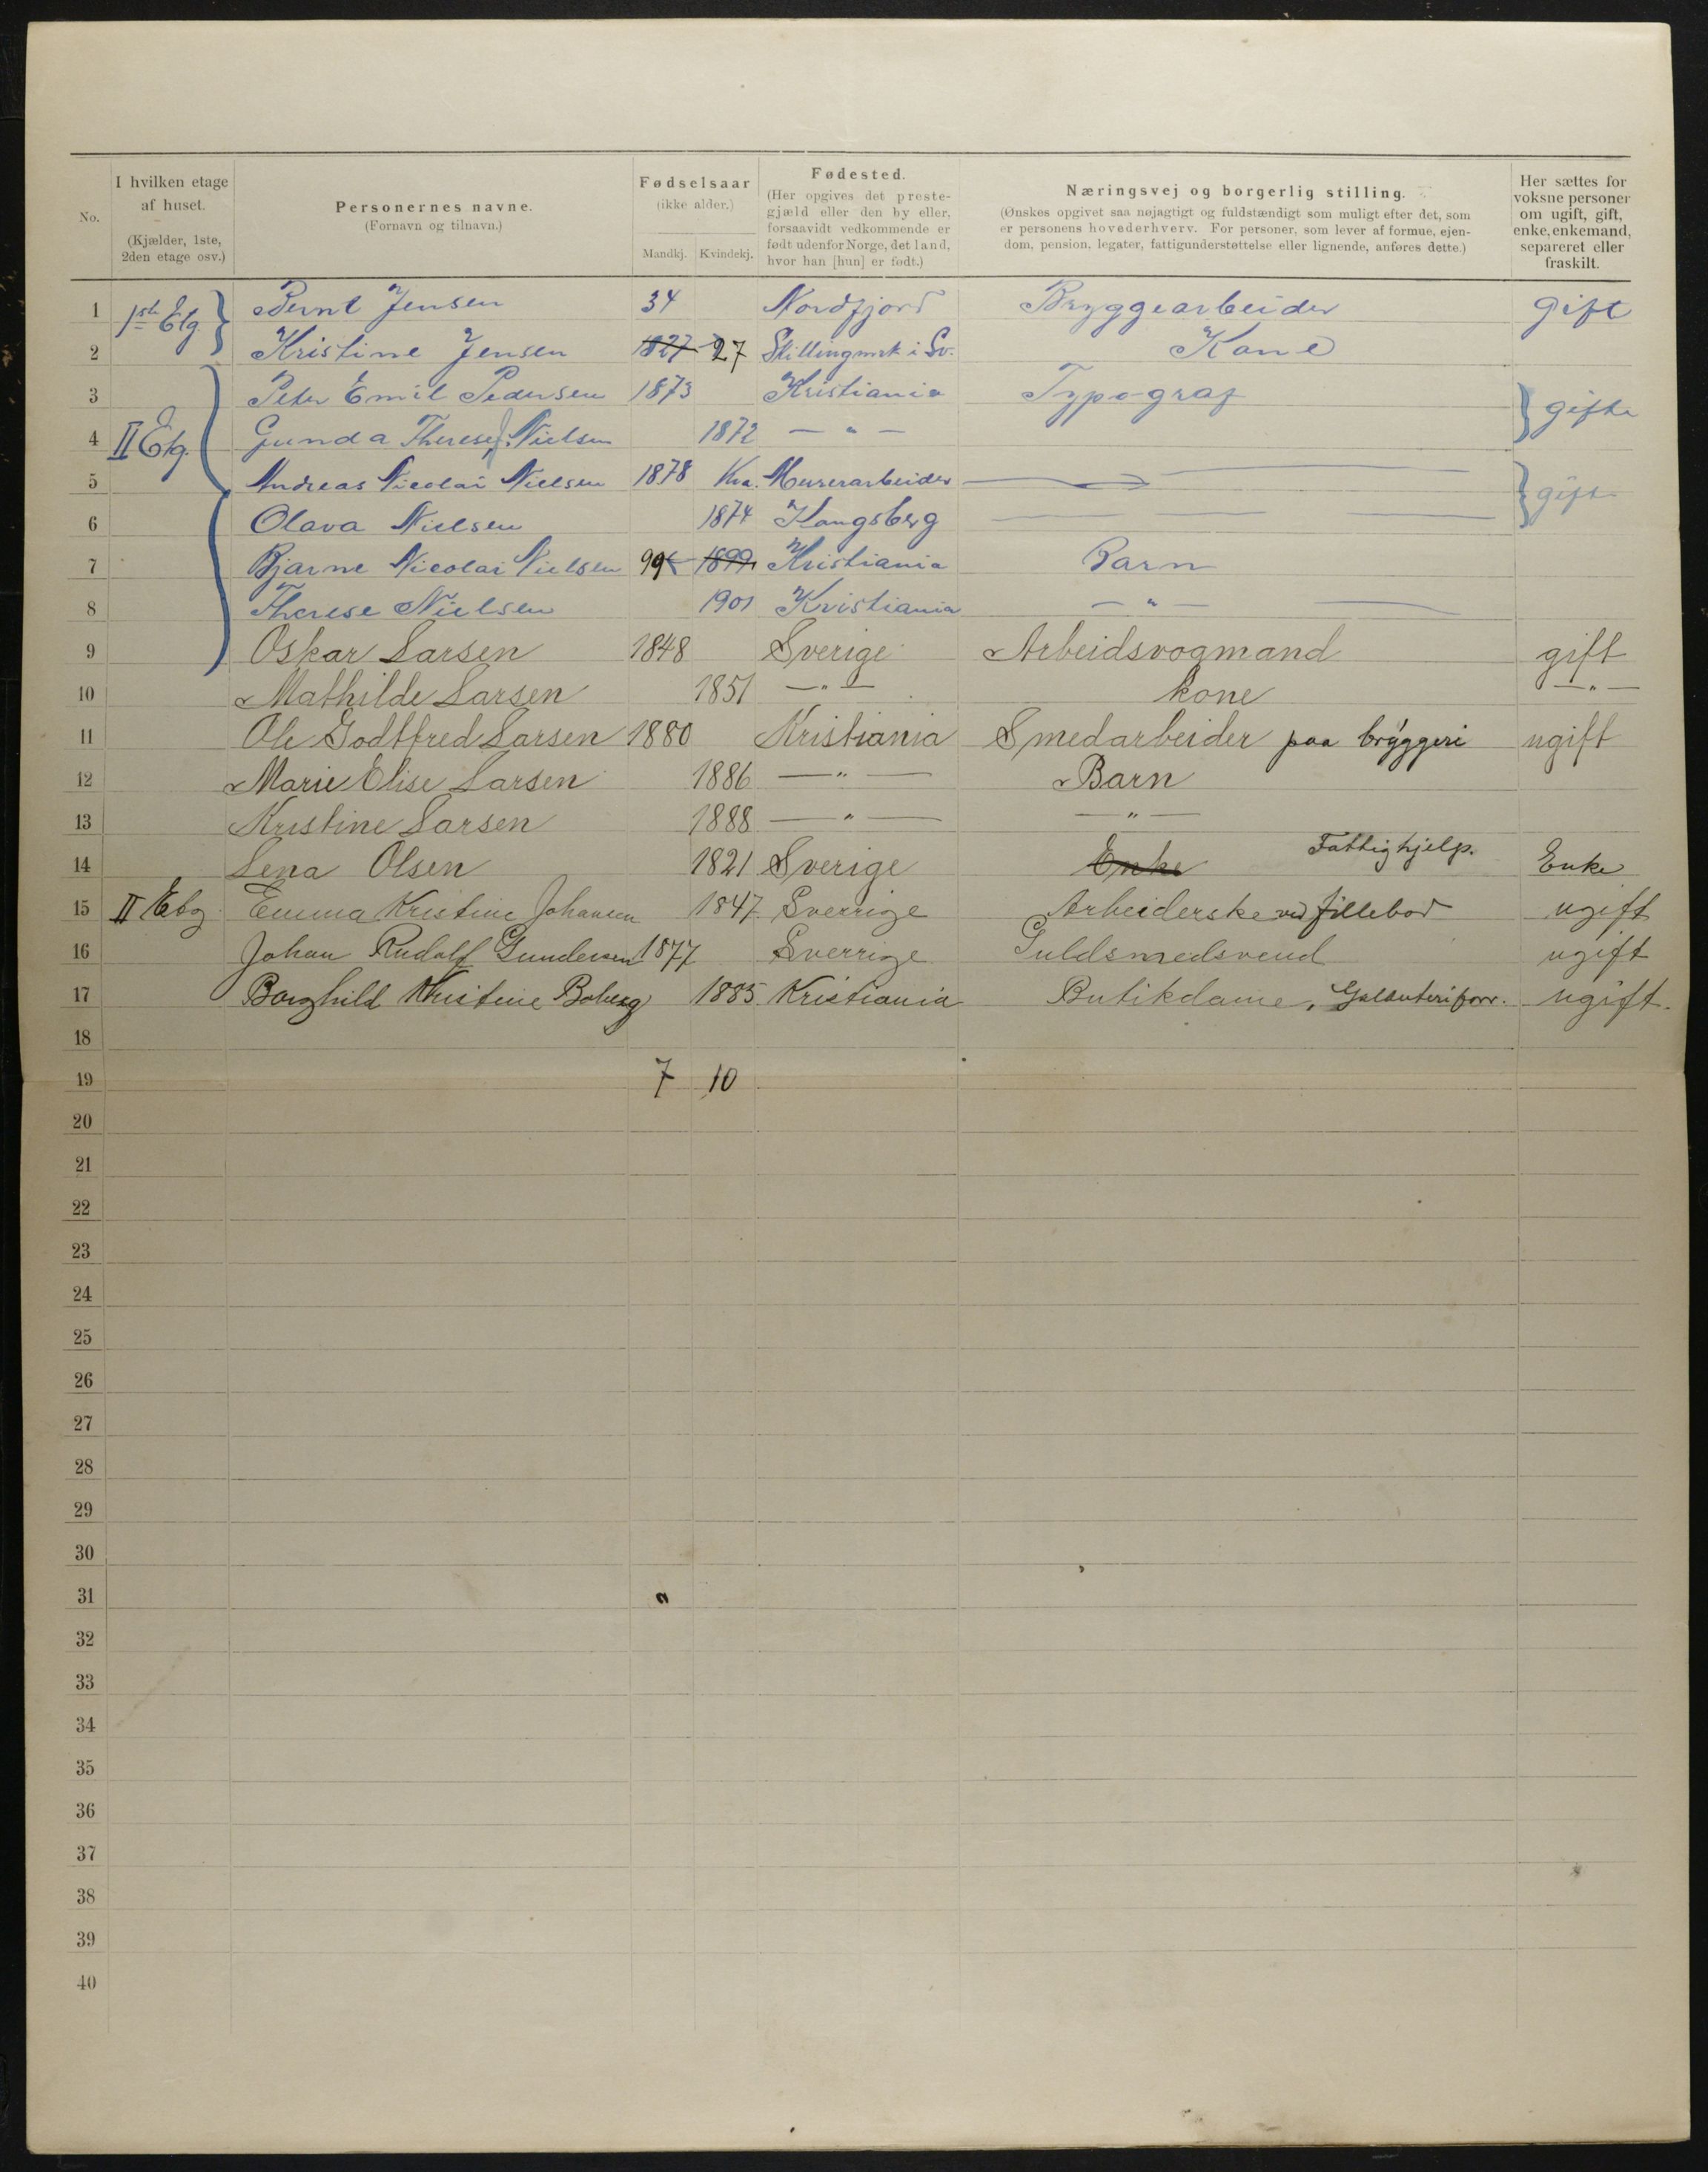 No.
I hvilken etage
af huset.
(Kjælder, 1ste,
2den etage osv.)
Personernes navne.
(Fornavn og tilnavn.)
Fødselsaar
(ikke alder.)
Mandkj. Kvindekj.
Fødested.
(Her opgives det preste-
gjæld eller den by eller,
forsaavidt vedkommende er
født udenfor Norge, det land,
hvor han [hun] er født.)
Næringsvej og borgerlig stilling.
(Ønskes opgivet saa nøjagtigt og fuldstændigt som muligt efter det, som
er personens hovederhverv. For personer, som lever af formue, ejen-
dom, pension, legater, fattigunderstøttelse eller lignende, anføres dette.)
Her sættes for
voksne personer
om ugift, gift,
enke, enkemand,
separeret eller
fraskilt.
1 1ste Etg. Bernt Jensen 34 Nordfjord Bryggearbeider gift
2 Kristine Jensen 1827 27 i Sv. Kone
3 Peter Emil Pedersen 1873 Kristiania Typograf
4 II Etg. Gunda Therese Nielsen 1872 — " — gifte
5 Andreas Nicolai Nielsen 1878 Kra. Murerarbeider
6 Olava Nielsen 1874 Kongsberg gift
7 Bjarne Nicolai Nielsen 99 1899 Kristiania Barn
8 Therese Nielsen 1901 Kristiania — " —
9 Oskar Larsen 1848 Sverige Arbeidsvogmand gift
10 Mathilde Larsen 1851 — " — kone — " —
11 Ole Godtfred Larsen 1880 Kristiania Smedarbeider paa bryggeri ugift
12 Marie Elise Larsen 1886 — " — Barn
13 Kristine Larsen 1888 — " — — " —
14 Lena Olsen 1821 Sverige Enke Fattighjelp. Enke
15 II Etg Emma Kristine Johansen 1847 Sverrige Arbeiderske ved fillebod ugift
16 Johan Rudolf Gundersen 1877 Sverrige Guldsmedsvend ugift
17 Borghild Kristine Boberg 1885 Kristiania Butikdame, Galanteriforr. ugift.
18
19 7 10
20
21
22
23
24
25
26
27
28
29
30
31
32
33
34
35
36
37
38
39
40